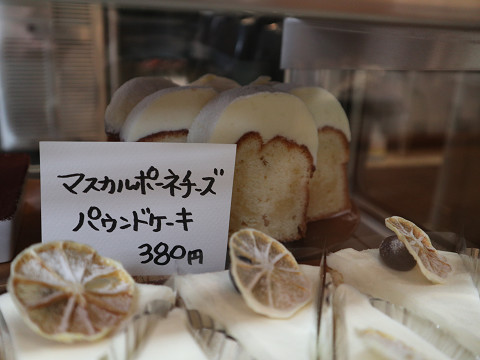 マスカルポーネチーズ
パウンドケーキ
380円